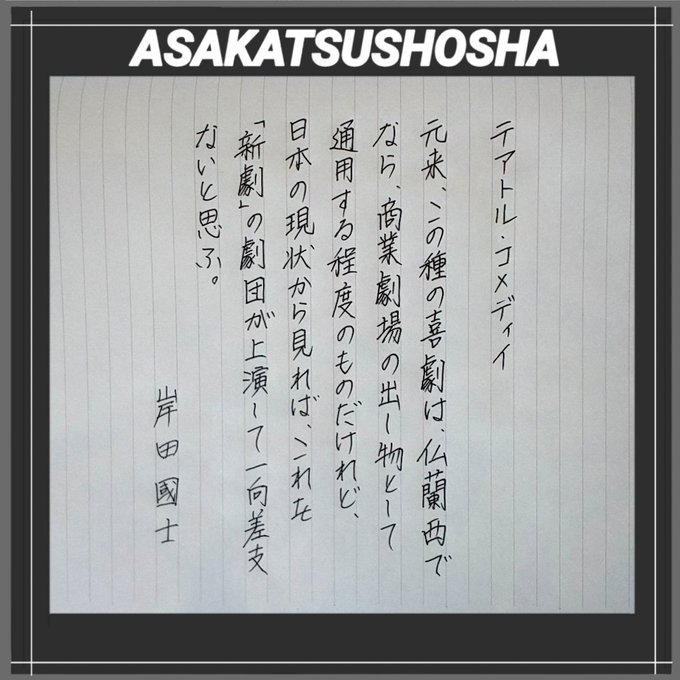 ASAKATSUSHOSHA
テアトル・コメディイ
元来、この種の喜劇は、仏蘭西で
なら、商業劇場の出し物として
通用する程度のものだけれど、
日本の現状から見れば、これを
「新劇」の劇団が上演して一向差支
ないと思ふ。
岸田國士